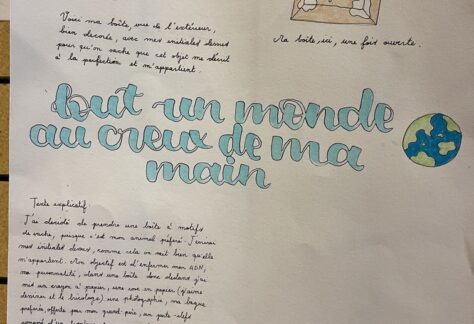 Voici ma boîte, vue de l'extérieur,
bien décorée, avec mes initiales dessus
pour qu'on sache que cet objet me décrit
à la perfection et m'appartient.
Ma boîte, ici, une fois ouverte.
tout un monde
au creux de ma
main
Texte explicatif:
J'ai décidé de prendre une boîte à motifs
de vache, puisque c'est mon animal préféré. J'ai mis
mes initiales dessus, comme cela on voit bien qu'elle
m'appartient. Mon objectif est d'enfermer mon ADN,
ma personnalité, dans une boîte donc dedans j'ai
mis un crayon à papier, une rose en papier (j'aime
dessiner et le bricolage) une photographie, ma bague
préférée, offerte par mon grand-père, un porte-clefs